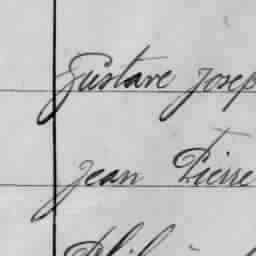 Gustave Josep
Jean Pierre